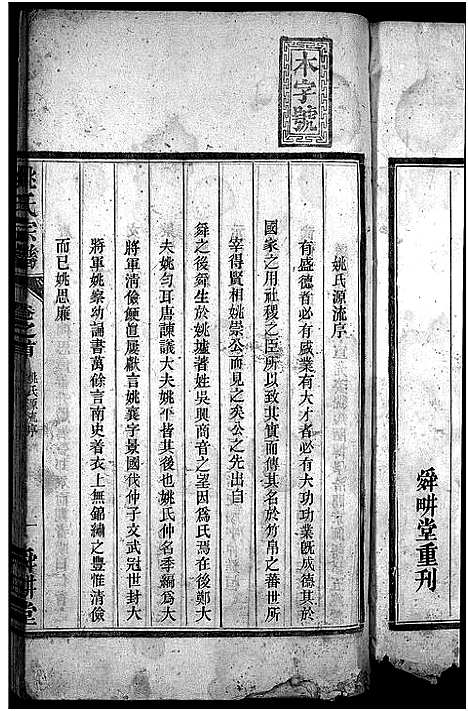 舜畊堂重刊
木字號
姚氏源流序
有盛德者必有盛業有大才者必有大功功業既成德其於
國家之用社稷之臣所以致其實而傳其名於竹帛之蕃世所
宰得賢相姚崇公而見之矣公之先出自
舜之後舜生於姚墟著姓吳興商音之望因為氏焉在後鄭大
夫姚勻耳唐諫議大夫姚平皆其後也姚氏仲名季編為大
將軍清儉鯁直屢獻言姚襄字景國伐仲子文武冠世封大
將軍姚察幼誦書萬餘言南史着衣上無錦繡之豐惟清儉
而已姚思廉
姚氏宗譜
卷之首
姚氏源流序
一
舜畊堂